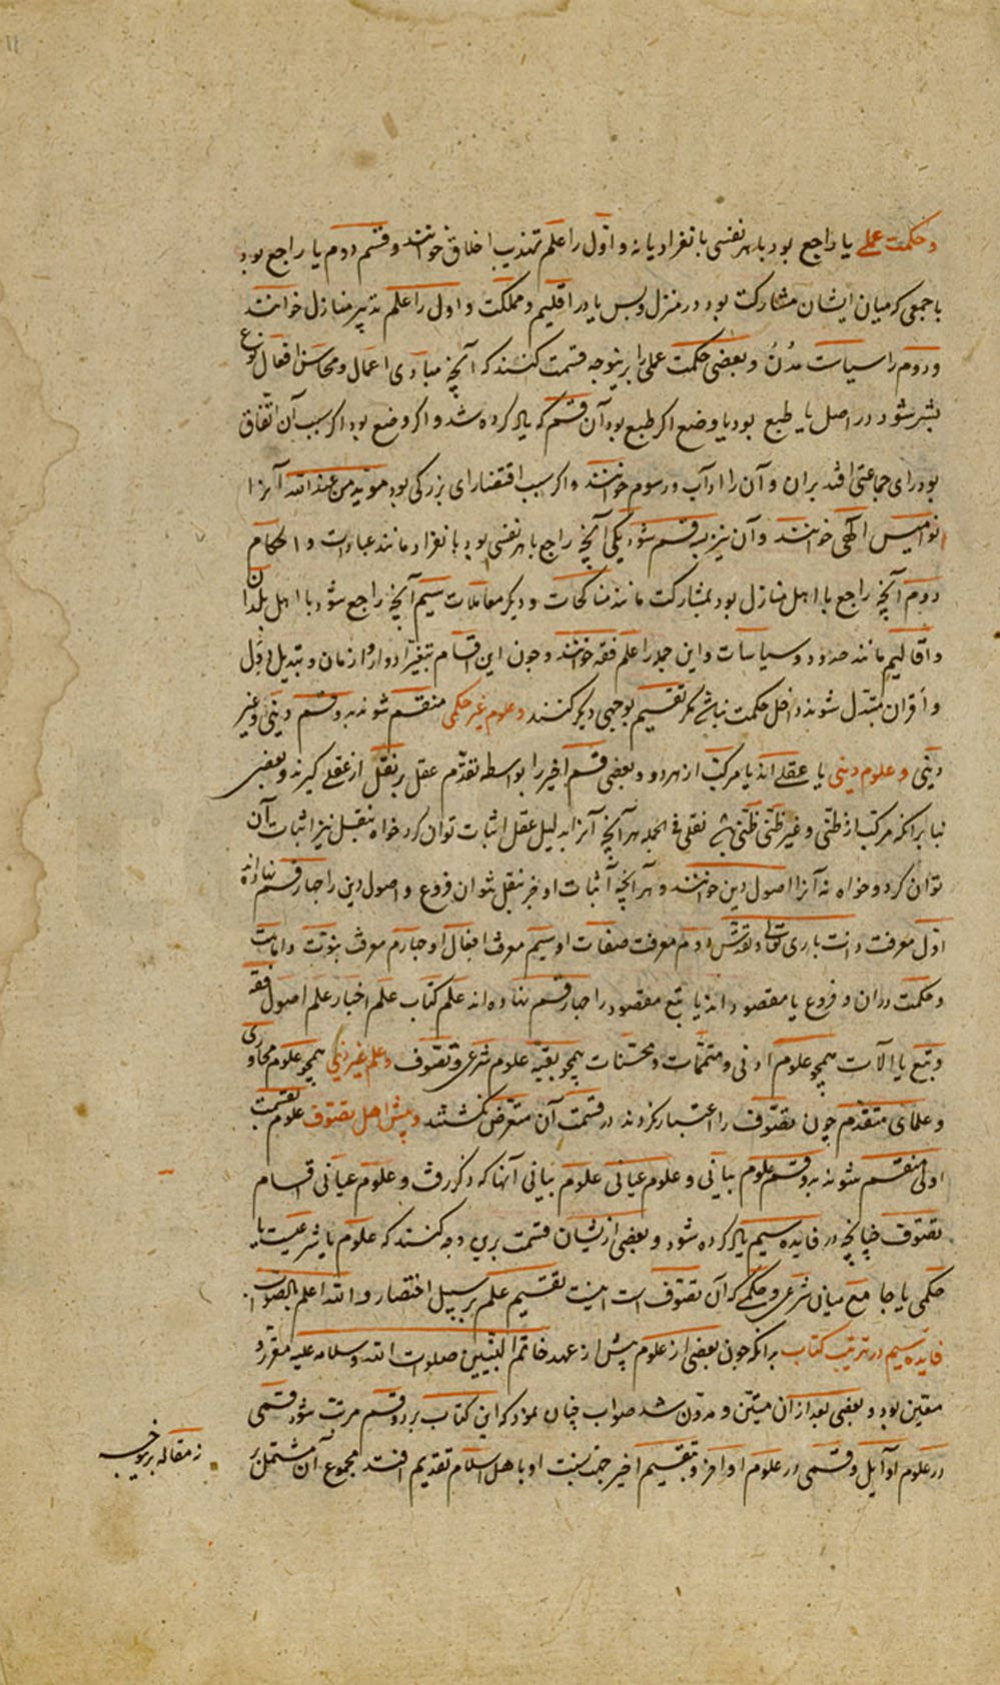 و حکمت عملی یا راجع بود با هر نفسی بانفراد یا نه و اول را علم تهذیب اخلاق خوانند و قسم دوم یا راجع بود
با جمعی که میان ایشان مشارکت بود در منزل و بس یا در اقلیم و مملکت و اول را علم تدبیر منازل خوانند
و دوم را سیاست مدن و بعضی حکمت عملی را برینوجه قسمت کنند که آنچه مبادی اعمال و محاسن افعال نوع
بشر شود در اصل یا طبع بود یا وضع اگر طبع بود آن قسم که یاد کرده شد و اگر وضع بود اگر سبب آن اتفاق
بود رای جماعتی افتد بران و آن را آداب و رسوم خوانند و اگر سبب اقتضا رای بزرگی بود مؤید من عند الله آنرا
نوامیس الهی خوانند و آن نیز بسه قسم شود یکی آنچه راجع با هر نفسی بود بانفراد مانند عبادات و احکام
دوم آنچه راجع با اهل منازل بود بمشارکت مانند مناکحات و دیگر معاملات سیم آنچه راجع شود با اهل بلدان
و اقالیم مانند حدود و سیاسات و این جمله را علم فقه خوانند و چون این اقسام بتغیر ادوار و ازمان و تبدیل دول
و اقران متبدل شوند داخل حکمت نباشد مگر تقسیم بوجهی دیگر کنند و علوم غیر حکمی منقسم شوند بدو قسم دینی و غیر
دینی و علوم دینی یا عقلی اند یا مرکب از هر دو و بعضی قسم اخیر را بواسطه تقدم عقل بر نقل از عقلی گیرند و بعضی
بنا برانکه مرکب از ظنی و غیر ظنی ظنی باشد نقلی فی الجمله هر آنچه آنرا بدلیل عقل اثبات توان کرد خواه بنقل نیز اثبات آن
توان کرد و خواه نه آنرا اصول دین خوانند و هر آنچه اثبات او جز بنقل نتوان فروع و اصول دین را چهار قسم نهاده اند
اول معرفت ذات باری تعالی و تقدس دوم معرفت صفات او سیم معرفت افعال او چهارم معرفت نبوت و امامت
و حکمت دران و فروع یا مقصود اند یا تبع مقصود را چهار قسم نهاده اند علم کتاب علم اخبار علم اصول فقه
و تبع یا آلات همچو علوم ادبی و متممات و محسنات همچو بقیه علوم شرعی و تصوف و علم غیر دینی همچو علوم محاوری
و علمای متقدم چون تصوف را اعتبار نکردند در قسمت آن متعرض نگشتند و پیش اهل تصوف علوم بقسمت
اولی منقسم شوند بدو قسم علوم بیانی و علوم عیانی علوم بیانی آنها که ذکر رفت و علوم عیانی اقسام
تصوف چنانچه در فایده سیم یاد کرده شود و بعضی ازیشان قسمت برین وجه کنند که علوم یا شرعیست یا
حکمی یا جامع میان شرعی و حکمی که آن تصوف است اینست تقسیم علم بر سبیل اختصار و الله اعلم بالصواب
فایده سیم در ترتیب کتاب بدانکه چون بعضی از علوم پیش از عهد خاتم النبیین صلوات الله و سلامه علیه مقرر و
معین بود و بعضی بعد از آن مبین و مدون شد صواب چنان نمود که این کتاب بر دو قسم مرتب شود قسمی
در علوم اوایل و قسمی در علوم اواخر و تقسیم اخیر جهت نسبت او با اهل اسلام تقدیم افتد مجموع آن مشتمل بر
نه مقاله بر موجب